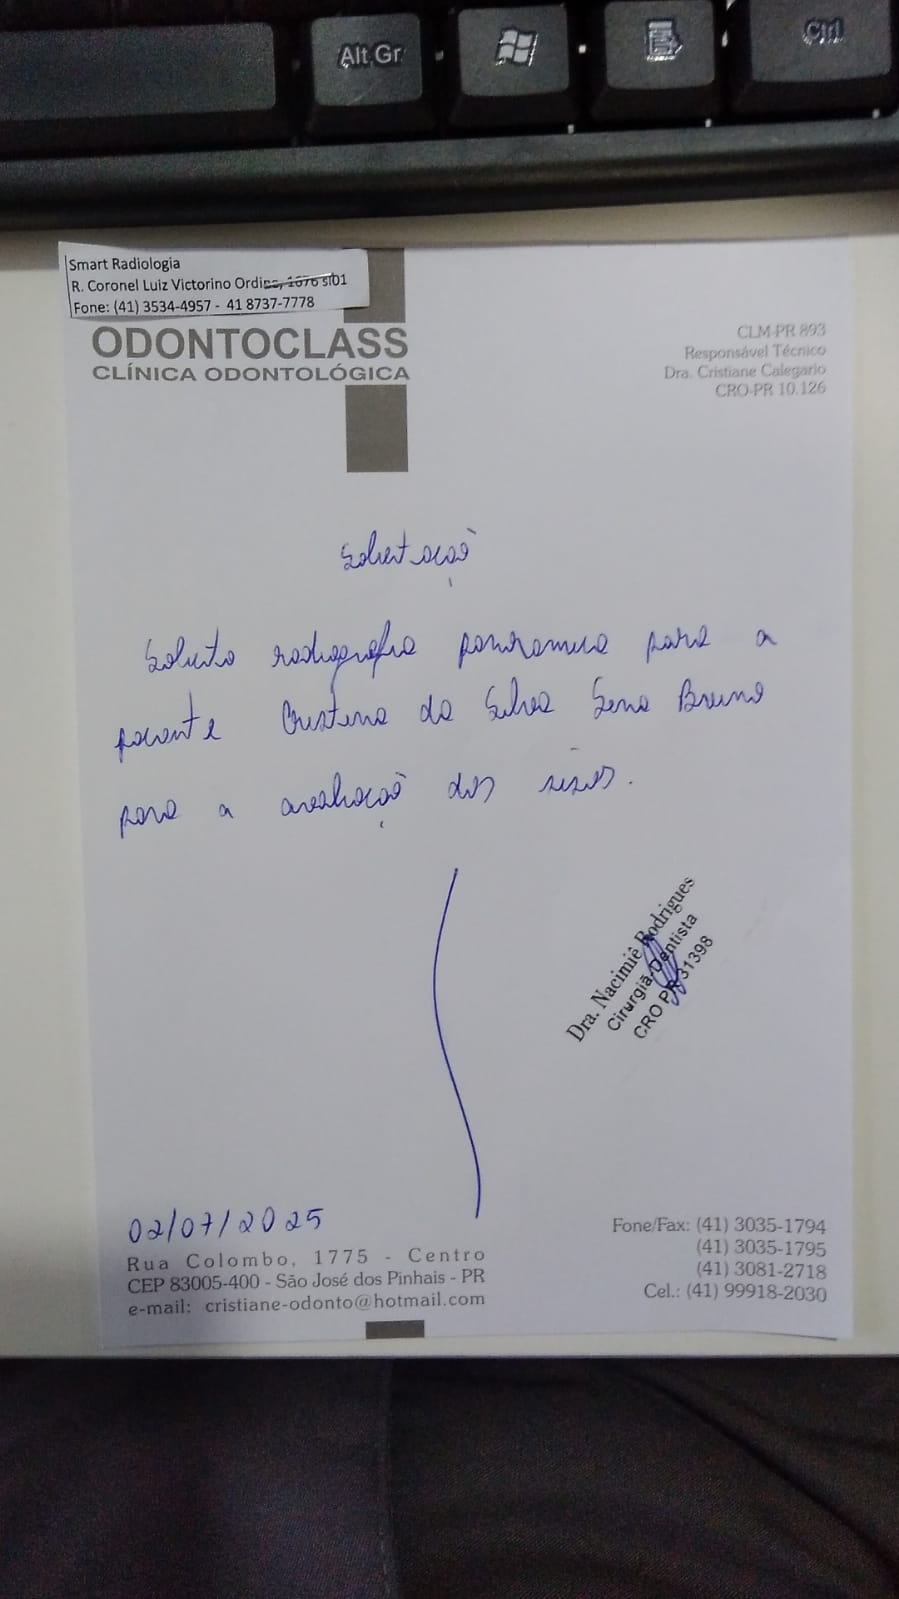 Alt Gr
Ctrl
Smart Radiologia
R. Coronel Luiz Victorino Ordine, 1676 sl01
Fone: (41) 3534-4957 - 41 8737-7778
ODONTOCLASS
CLÍNICA ODONTOLÓGICA
CLM-PR 893
Responsável Técnico
Dra. Cristiane Calegario
CRO-PR 10.126
Solicitação
Solicito radiografia panoramica para a
paciente Cristina da Silva Sena Bruno
para a avaliação dos sisos.
Dra. Nacimiê Rodrigues
Cirurgiã-Dentista
CRO PR 31398
02/07/2025
Rua Colombo, 1775 - Centro
CEP 83005-400 - São José dos Pinhais - PR
e-mail: cristiane-odonto@hotmail.com
Fone/Fax: (41) 3035-1794
(41) 3035-1795
(41) 3081-2718
Cel.: (41) 99918-2030